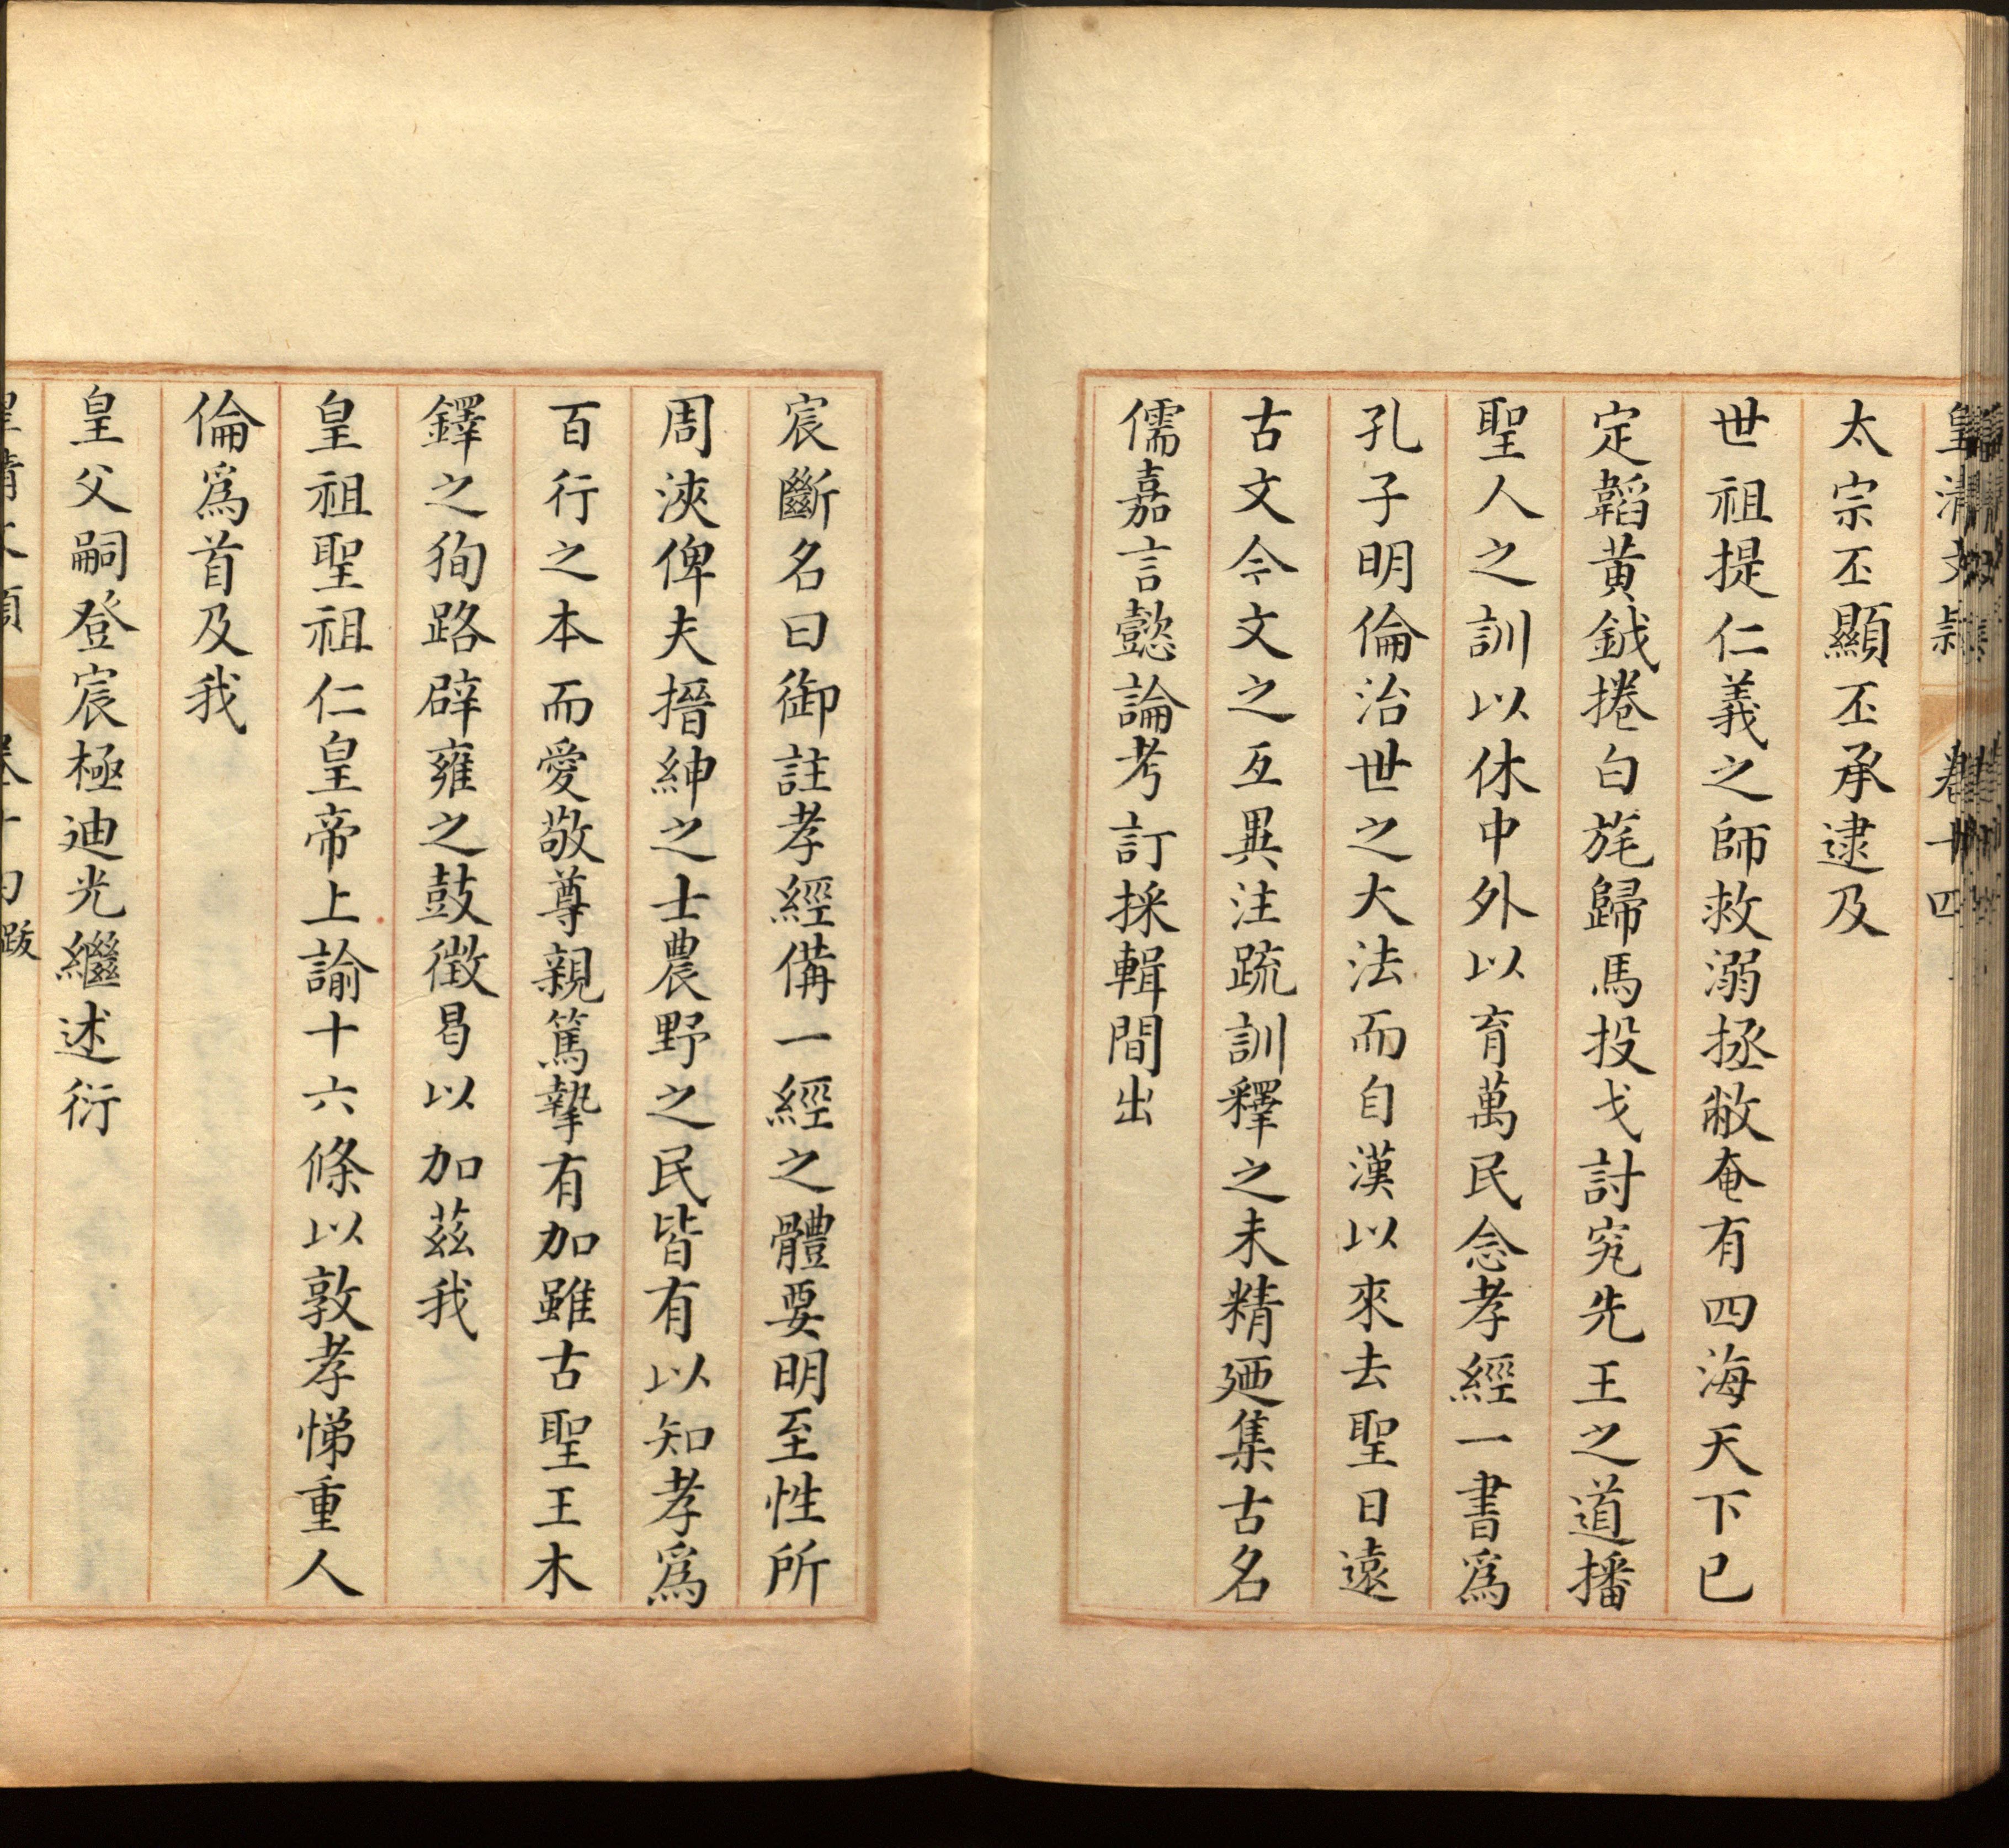 皇清文穎 卷十四
太宗丕顯丕承逮及
世祖提仁義之師救溺拯敝奄有四海天下已
定韜黃鉞捲白旄歸馬投戈討究先王之道播
聖人之訓以休中外以育萬民念孝經一書為
孔子明倫治世之大法而自漢以來去聖日遠
古文今文之互異注疏訓釋之未精廼集古名
儒嘉言懿論考訂採輯間出
宸斷名曰御註孝經備一經之體要明至性所
周浹俾夫搢紳之士農野之民皆有以知孝為
百行之本而愛敬尊親篤摯有加雖古聖王木
鐸之狥路辟雍之鼓徵曷以加茲我
皇祖聖祖仁皇帝上諭十六條以敦孝悌重人
倫為首及我
皇父嗣登宸極迪光繼述衍